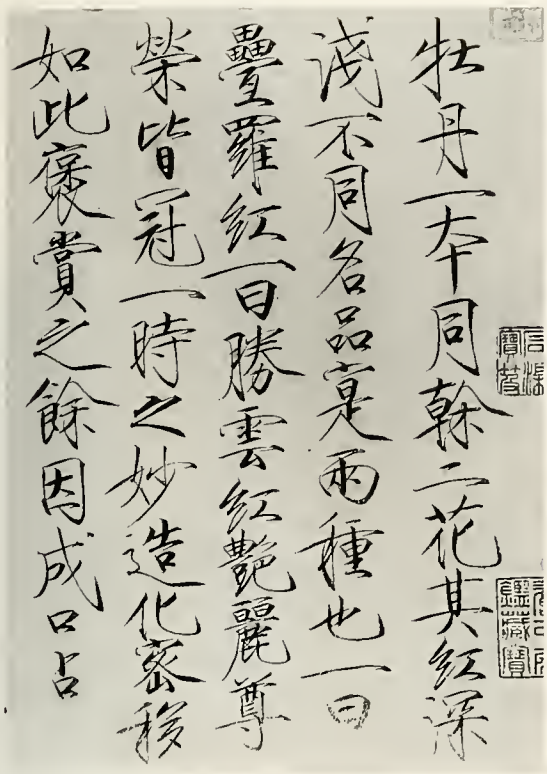 牡丹一本同榦二花其紅深
淺不同名品寔兩種也一曰
疊羅紅一曰勝雲紅艷麗尊
榮皆冠一時之妙造化密移
如此褒賞之餘因成口占